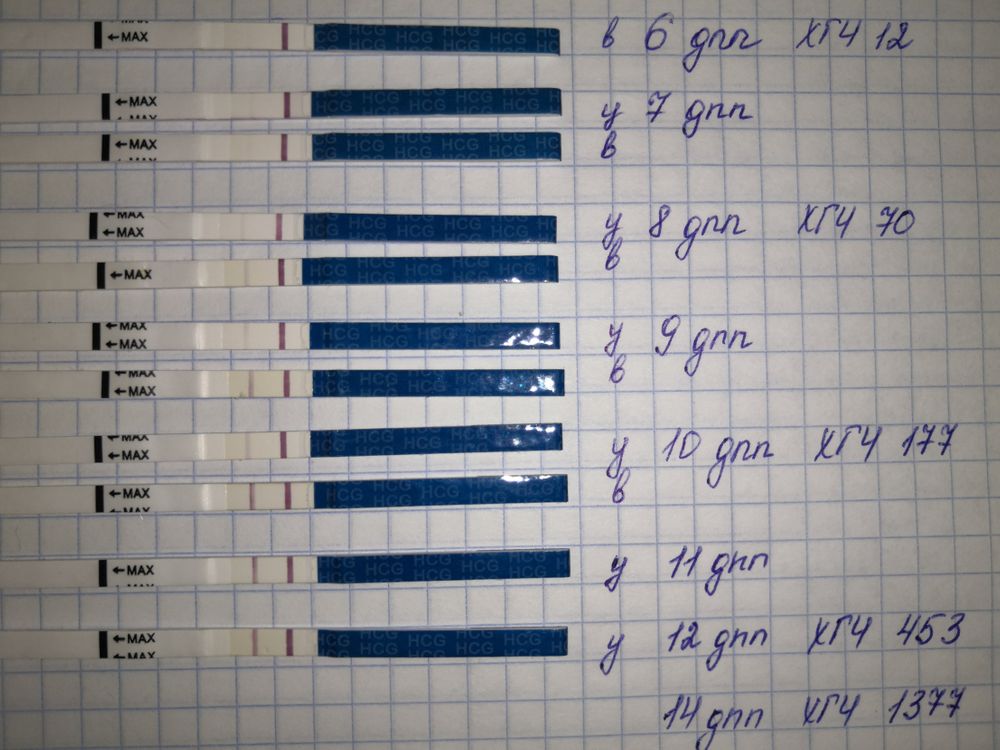 MAX
←MAX HCG HCG HCG HCG HCG в 6 дпп ХГЧ 12
←MAX HCG HCG HCG HCG HCG у 7 дпп
←MAX HCG HCG HCG HCG HCG в
MAX
←MAX HCG HCG HCG HCG HCG у 8 дпп ХГЧ 70
←MAX HCG HCG HCG HCG в
MAX
←MAX HCG HCG HCG HCG у 9 дпп
MAX
←MAX HCG HCG HCG HCG в
MAX
←MAX HCG HCG HCG HCG у 10 дпп ХГЧ 177
←MAX HCG HCG HCG HCG HCG в
MAX
←MAX HCG HCG HCG HCG HCG у 11 дпп
←MAX HCG HCG HCG HCG HCG у 12 дпп ХГЧ 453
MAX
14 дпп ХГЧ 1377